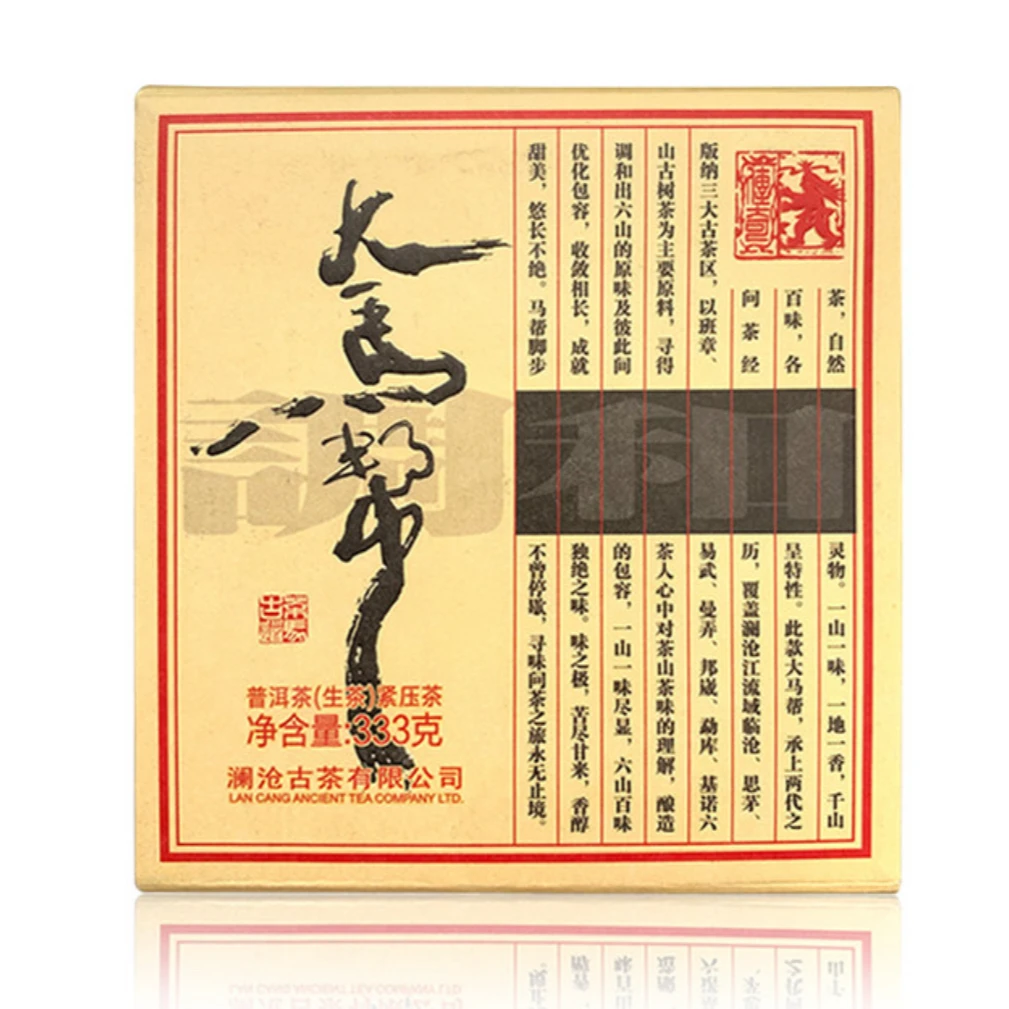 茶，自然灵物。一山一味，一地一香，千山
百味，各呈特性。此款大马帮，承上两代之
问茶经历，覆盖澜沧江流域临沧、思茅、
版纳三大古茶区，以班章、易武、曼弄、邦崴、勐库、基诺六
山古树茶为主要原料，寻得茶人心中对茶山茶味的理解，酿造
调和出六山的原味及彼此间的包容，一山一味尽显，六山百味
优化包容，收敛相长，成就独绝之味。味之极，苦尽甘来，香醇
甜美，悠长不绝。马帮脚步不曾停歇，寻味问茶之旅永无止境。
調和
大馬幫
普洱茶(生茶)紧压茶
净含量:333克
澜沧古茶有限公司
LAN CANG ANCIENT TEA COMPANY LTD.